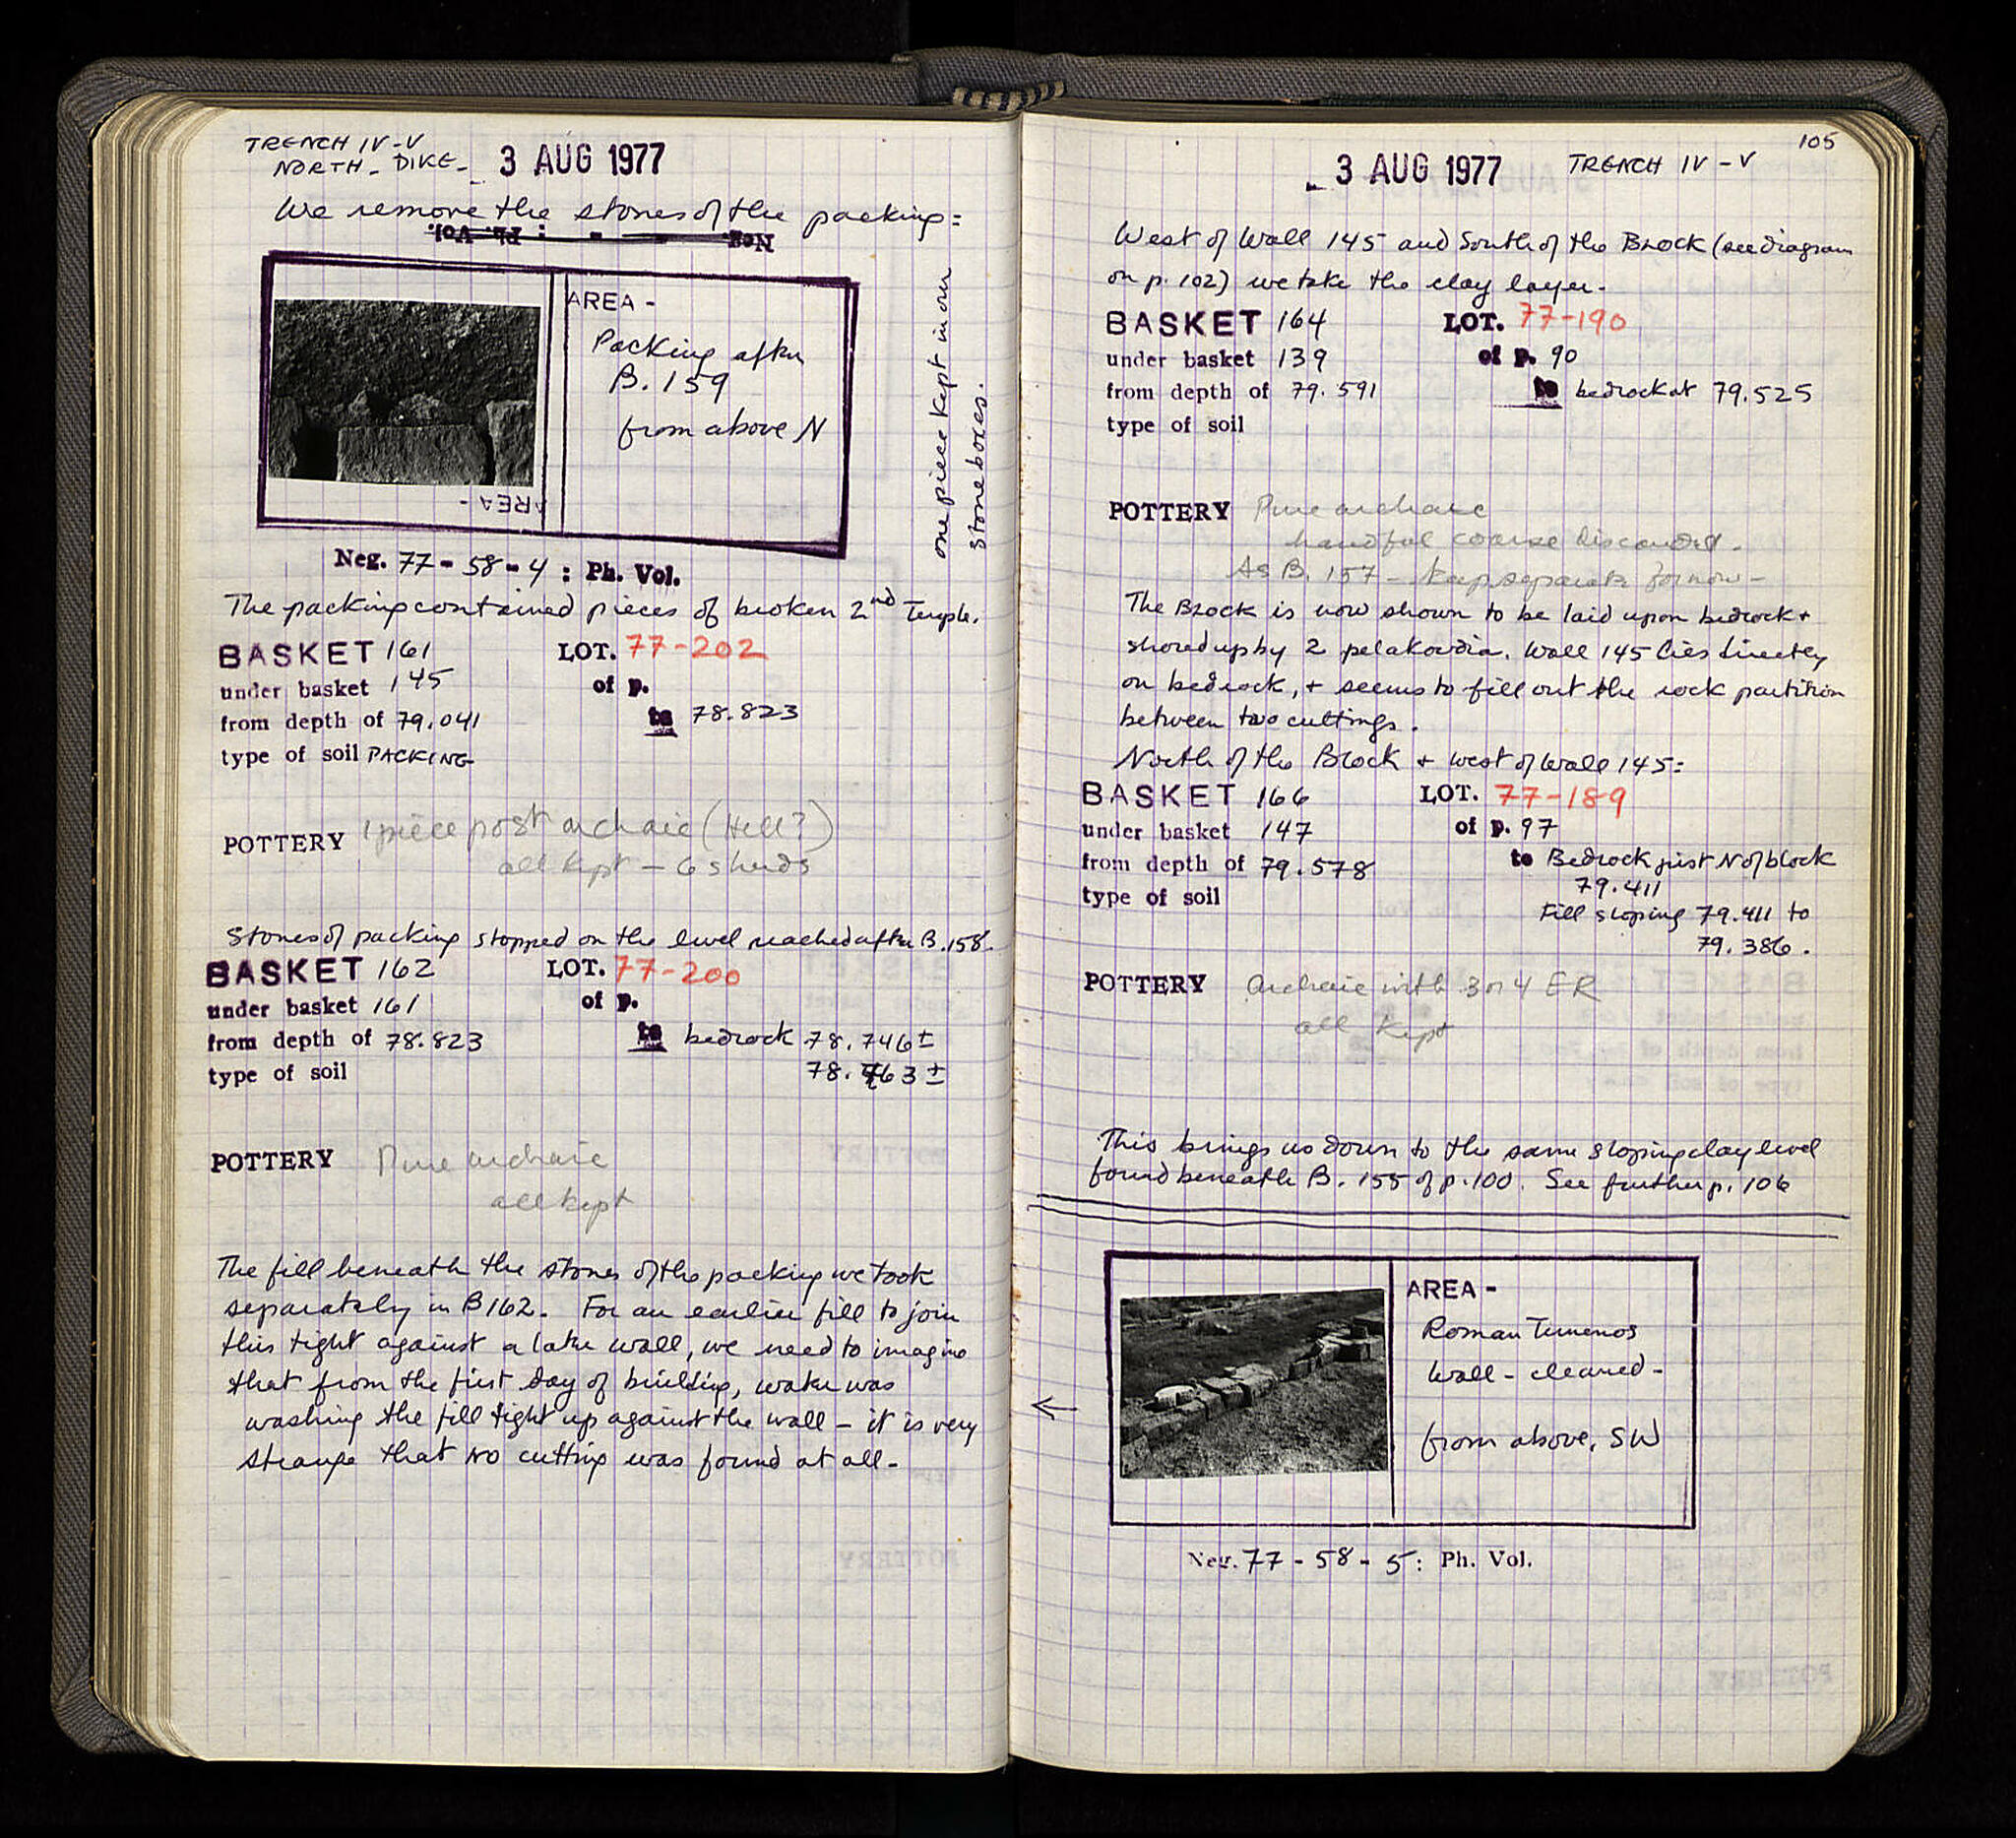 TRENCH IV-V
NORTH - DIKE - 3 AUG 1977
We remove the stones of the packing =
Neg. - - : Ph. Vol.
AREA -
Packing after
B. 159
from above N
AREA -
one piece kept in our
stone boxes.
Neg. 77 - 58 - 4 : Ph. Vol.
The packing contained pieces of broken 2nd Temple.
BASKET 161 LOT. 77-202
under basket 145 of p.
from depth of 79.041 to 78.823
type of soil PACKING
POTTERY 1 piece post archaic (Hell?)
all kept - 6 sherds
Stones of packing stopped on the level reached after B. 158.
BASKET 162 LOT. 77-200
under basket 161 of p.
from depth of 78.823 to bedrock 78.746 ±
type of soil 78.763 ±
POTTERY Pure archaic
all kept
The fill beneath the stones of the packing we took
separately in B162. For an earlier fill to join
this tight against a later wall, we need to imagine
that from the first day of building, water was
washing the fill tight up against the wall - it is very
strange that no cutting was found at all -
105
3 AUG 1977 TRENCH IV - V
West of Wall 145 and South of the Block (see diagram
on p. 102) we take the clay layer -
BASKET 164 LOT. 77-190
under basket 139 of p. 90
from depth of 79.591 to bedrock at 79.525
type of soil
POTTERY Pure archaic
handful coarse discarded -
As B. 157 - keep separate for now -
The Block is now shown to be laid upon bedrock +
shored up by 2 pelakoudia. Wall 145 lies directly
on bedrock, + seems to fill out the rock partition
between two cuttings.
North of the Block + west of Wall 145 =
BASKET 166 LOT. 77-189
under basket 147 of p. 97
from depth of 79.578 to Bedrock just N of block
79.411
type of soil
Fill sloping 79.411 to
79.386.
POTTERY Archaic with 3 or 4 ER
all kept
This brings us down to the same sloping clay level
found beneath B. 155 of p. 100. See further p. 106
AREA -
Roman Temenos
Wall - cleaned -
from above, SW
Neg. 77 - 58 - 5 : Ph. Vol.